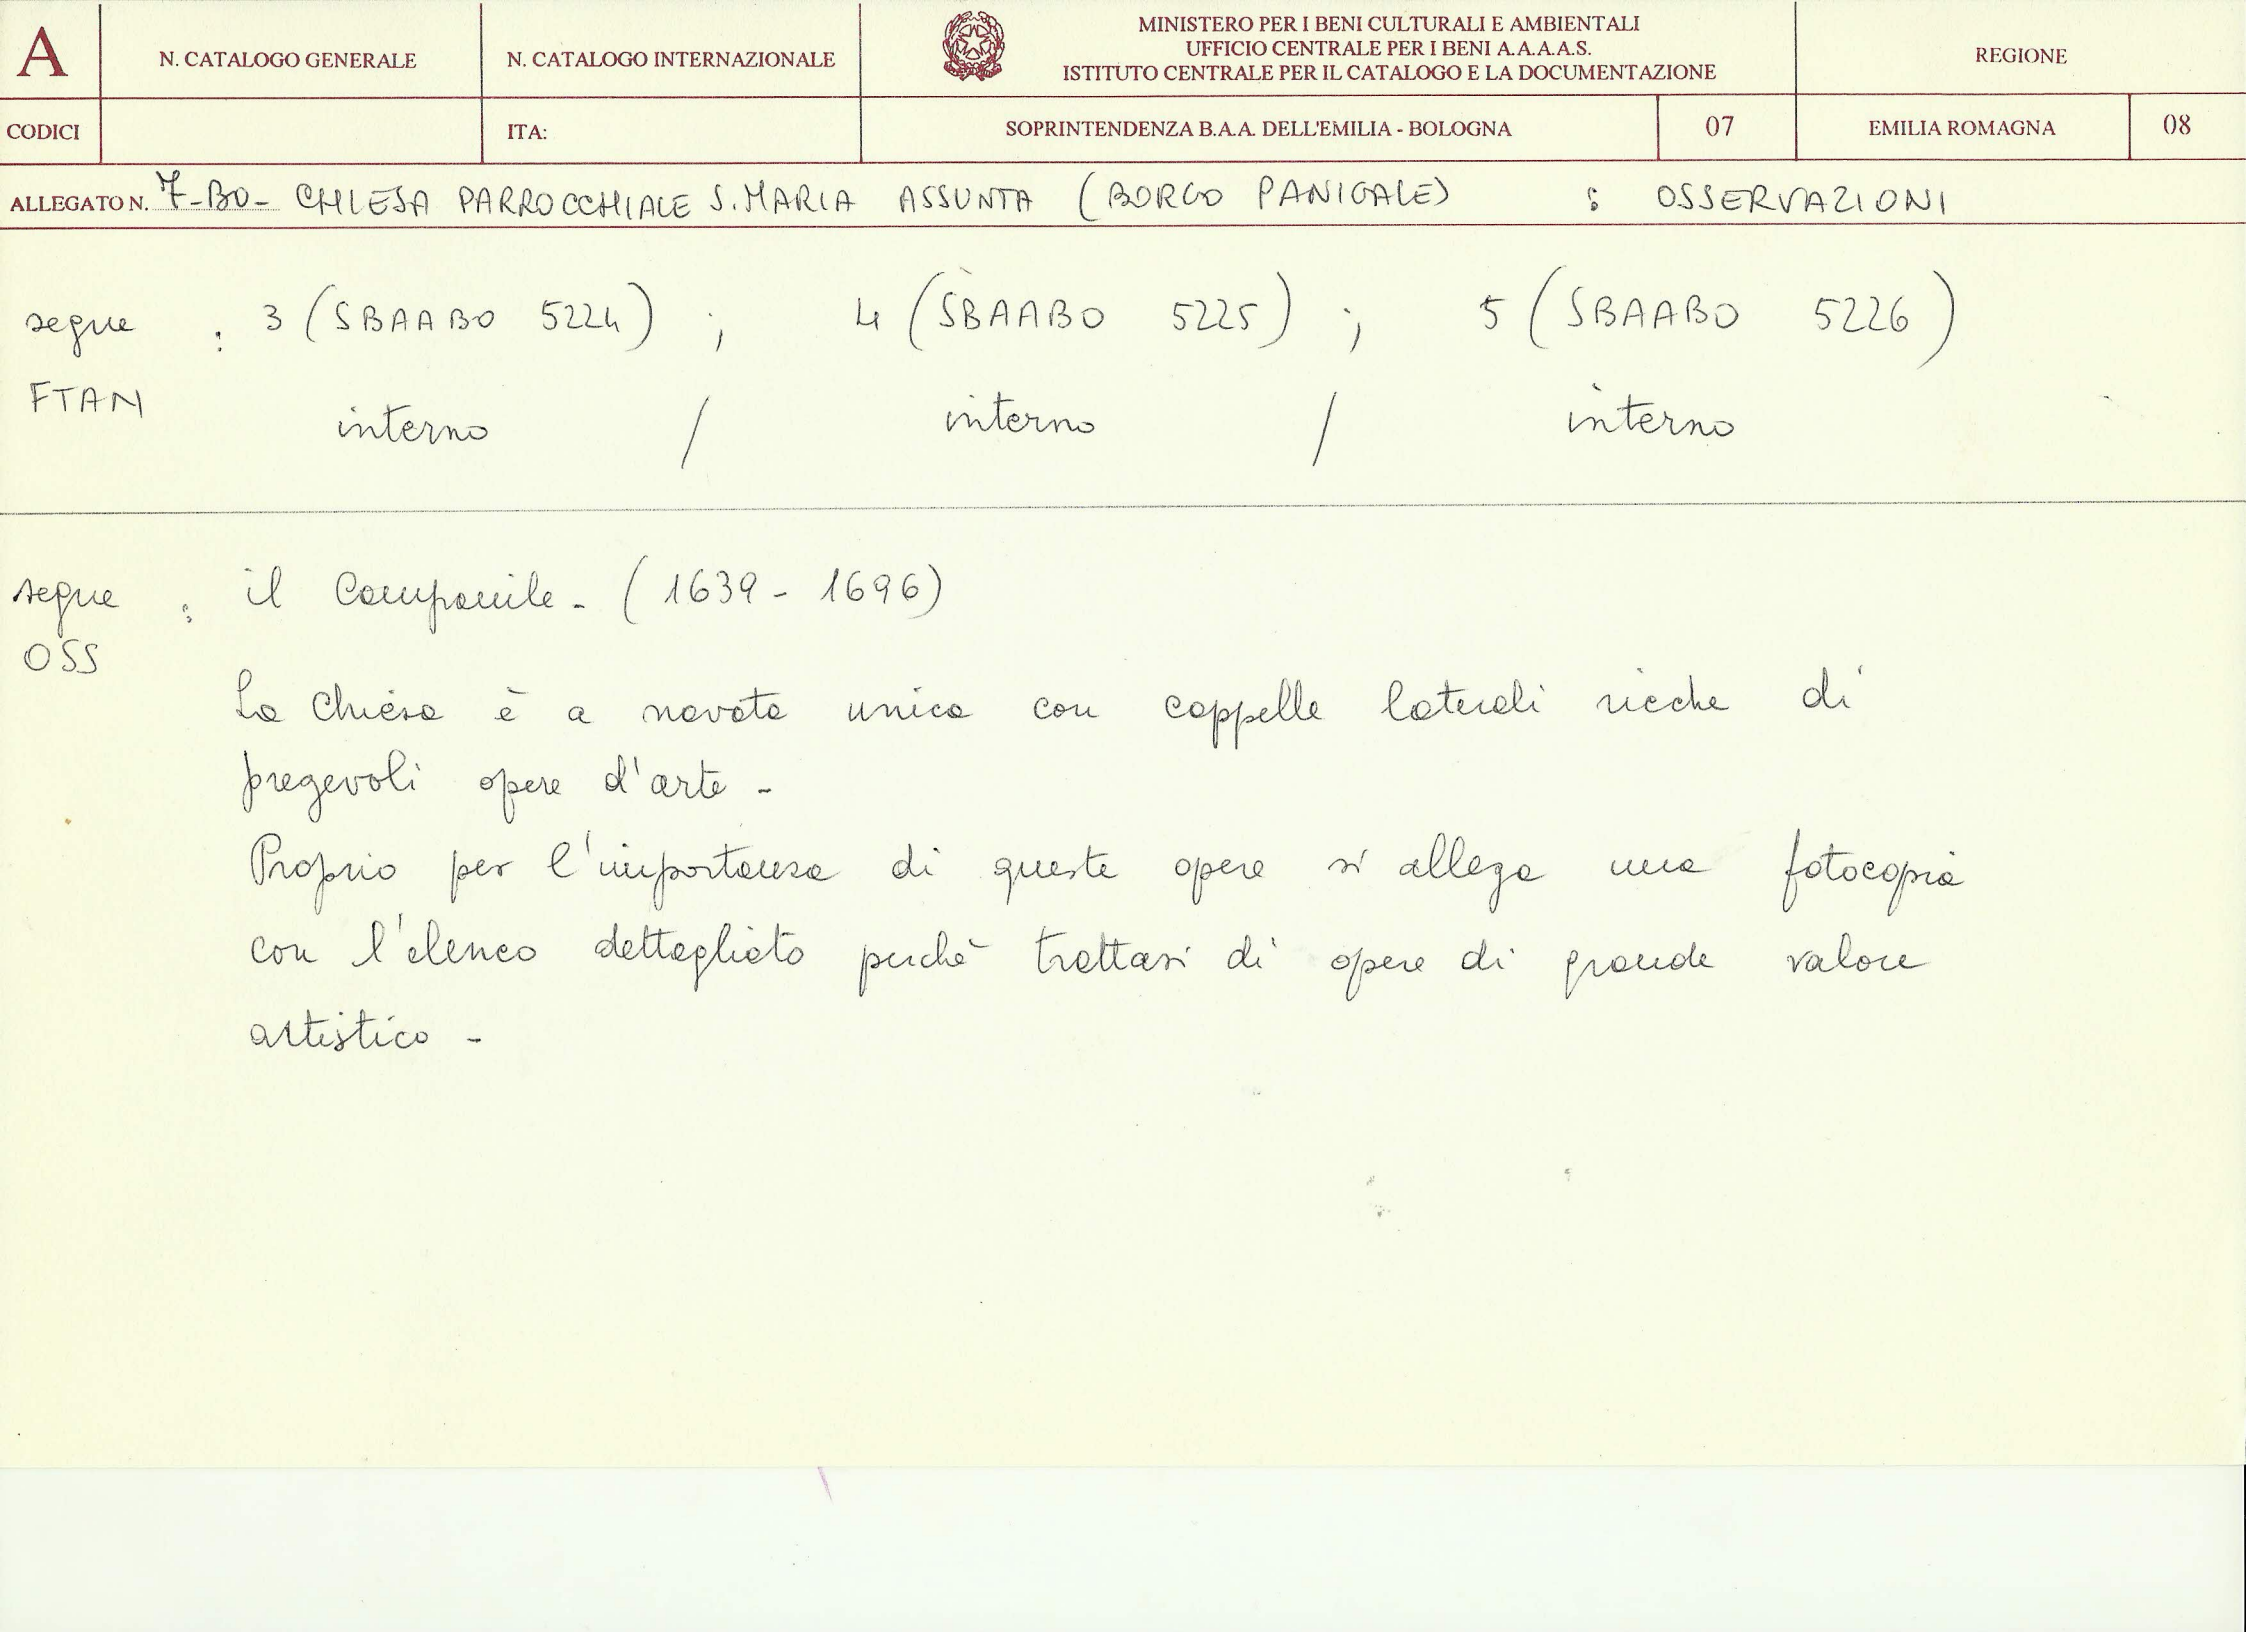 A
N. CATALOGO GENERALE
N. CATALOGO INTERNAZIONALE
MINISTERO PER I BENI CULTURALI E AMBIENTALI
UFFICIO CENTRALE PER I BENI A.A.A.A.S.
ISTITUTO CENTRALE PER IL CATALOGO E LA DOCUMENTAZIONE
REGIONE
CODICI
ITA:
SOPRINTENDENZA B.A.A. DELL'EMILIA - BOLOGNA
07
EMILIA ROMAGNA
08
ALLEGATO N. 7-BO- CHIESA PARROCCHIALE S. MARIA ASSUNTA (BORGO PANIGALE) : OSSERVAZIONI
segue : 3 (SBAABO 5224) ; 4 (SBAABO 5225) ; 5 (SBAABO 5226)
FTAN interno / interno / interno
segue : il Campanile - (1639 - 1696)
OSS
La Chiesa è a navata unica con cappelle laterali ricche di
pregevoli opere d'arte -
Proprio per l'importanza di queste opere si allega una fotocopia
con l'elenco dettagliato perchè trattasi di opere di grande valore
artistico -